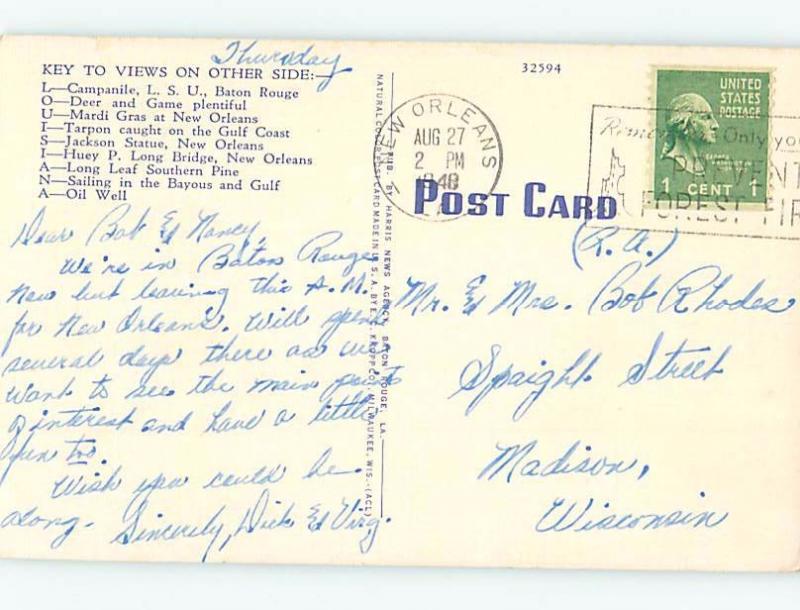 Thursday
KEY TO VIEWS ON OTHER SIDE:—
L—Campanile, L. S. U., Baton Rouge
O—Deer and Game plentiful
U—Mardi Gras at New Orleans
I—Tarpon caught on the Gulf Coast
S—Jackson Statue, New Orleans
I—Huey P. Long Bridge, New Orleans
A—Long Leaf Southern Pine
N—Sailing in the Bayous and Gulf
A—Oil Well
Dear Bob & Nancy,
We're in Baton Rouge
now but leaving this A.M.
for New Orleans. Will spend
several days there as we
want to see the main points
of interest and have a little
fun too.
Wish you could be
along. Sincerely, Dick & Virg.
PUB. BY HARRIS NEWS AGENCY, BATON ROUGE, LA.
NATURAL COLOR POST CARD MADE IN U. S. A. BY E. C. KROPP CO., MILWAUKEE, WIS.—(ACL)
32594
NEW ORLEANS
AUG 27
2 PM
1948
LA.
UNITED
STATES
POSTAGE
GEORGE
WASHINGTON
1 CENT 1
Only you
PREVENT
FOREST FIR
POST CARD
(R.A.)
Mr. & Mrs. Bob Rhodes
Spaight Street
Madison,
Wisconsin